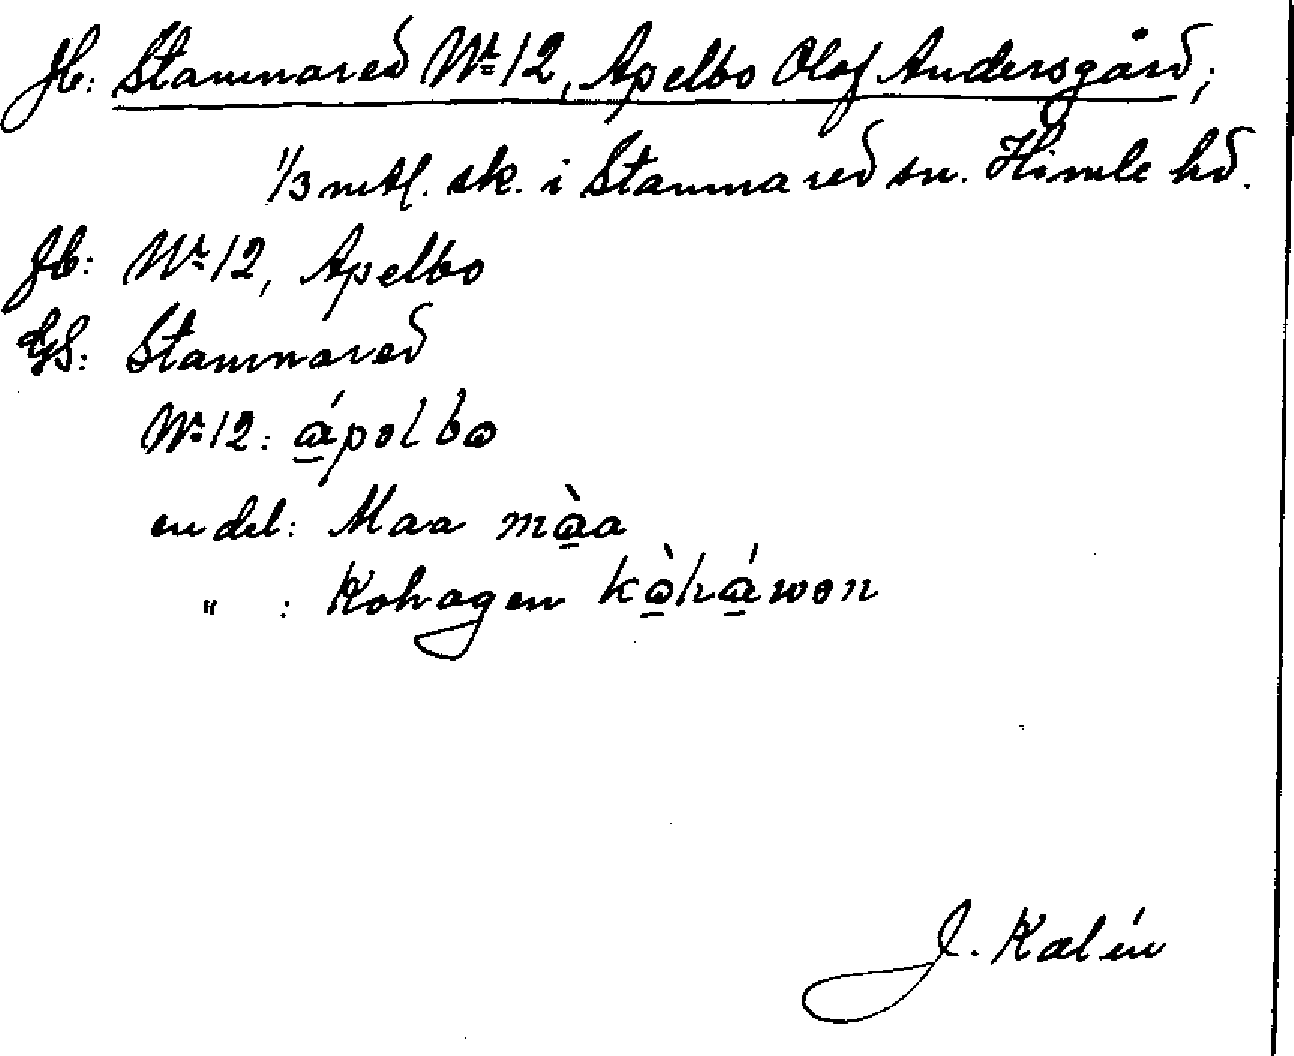 Jb: Stamnared Nr 12, Apelbo Olof Andersgård;
1/3 mtl. sk. i Stamnared sn. Himle hd.
Jb: Nr 12, Apelbo
GS: Stamnared
Nr 12: á̱pəlbɷ
en del: Maa mа̱̀a
" : Kohagen kɷ̱̀há̱wən
J. Kalén